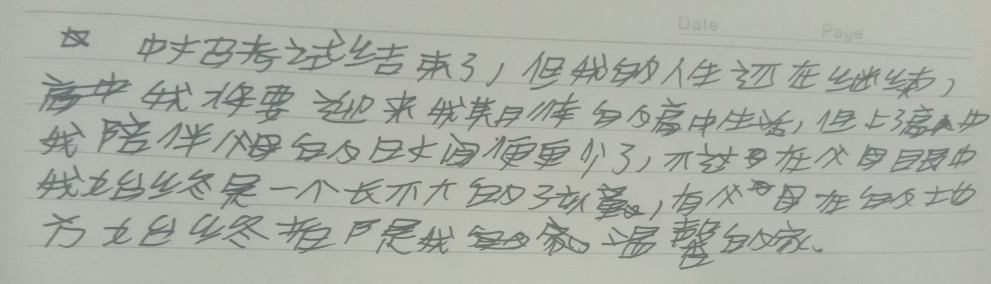 Date Page
中招考试结束了,但我的人生还在继续,
我将要迎来我期待的高中生活,但上了高中
我陪伴父母的时间便更少了,不过在父母眼中
我始终是一个长不大的孩,有父母在的地
方始终都是我温馨的家。